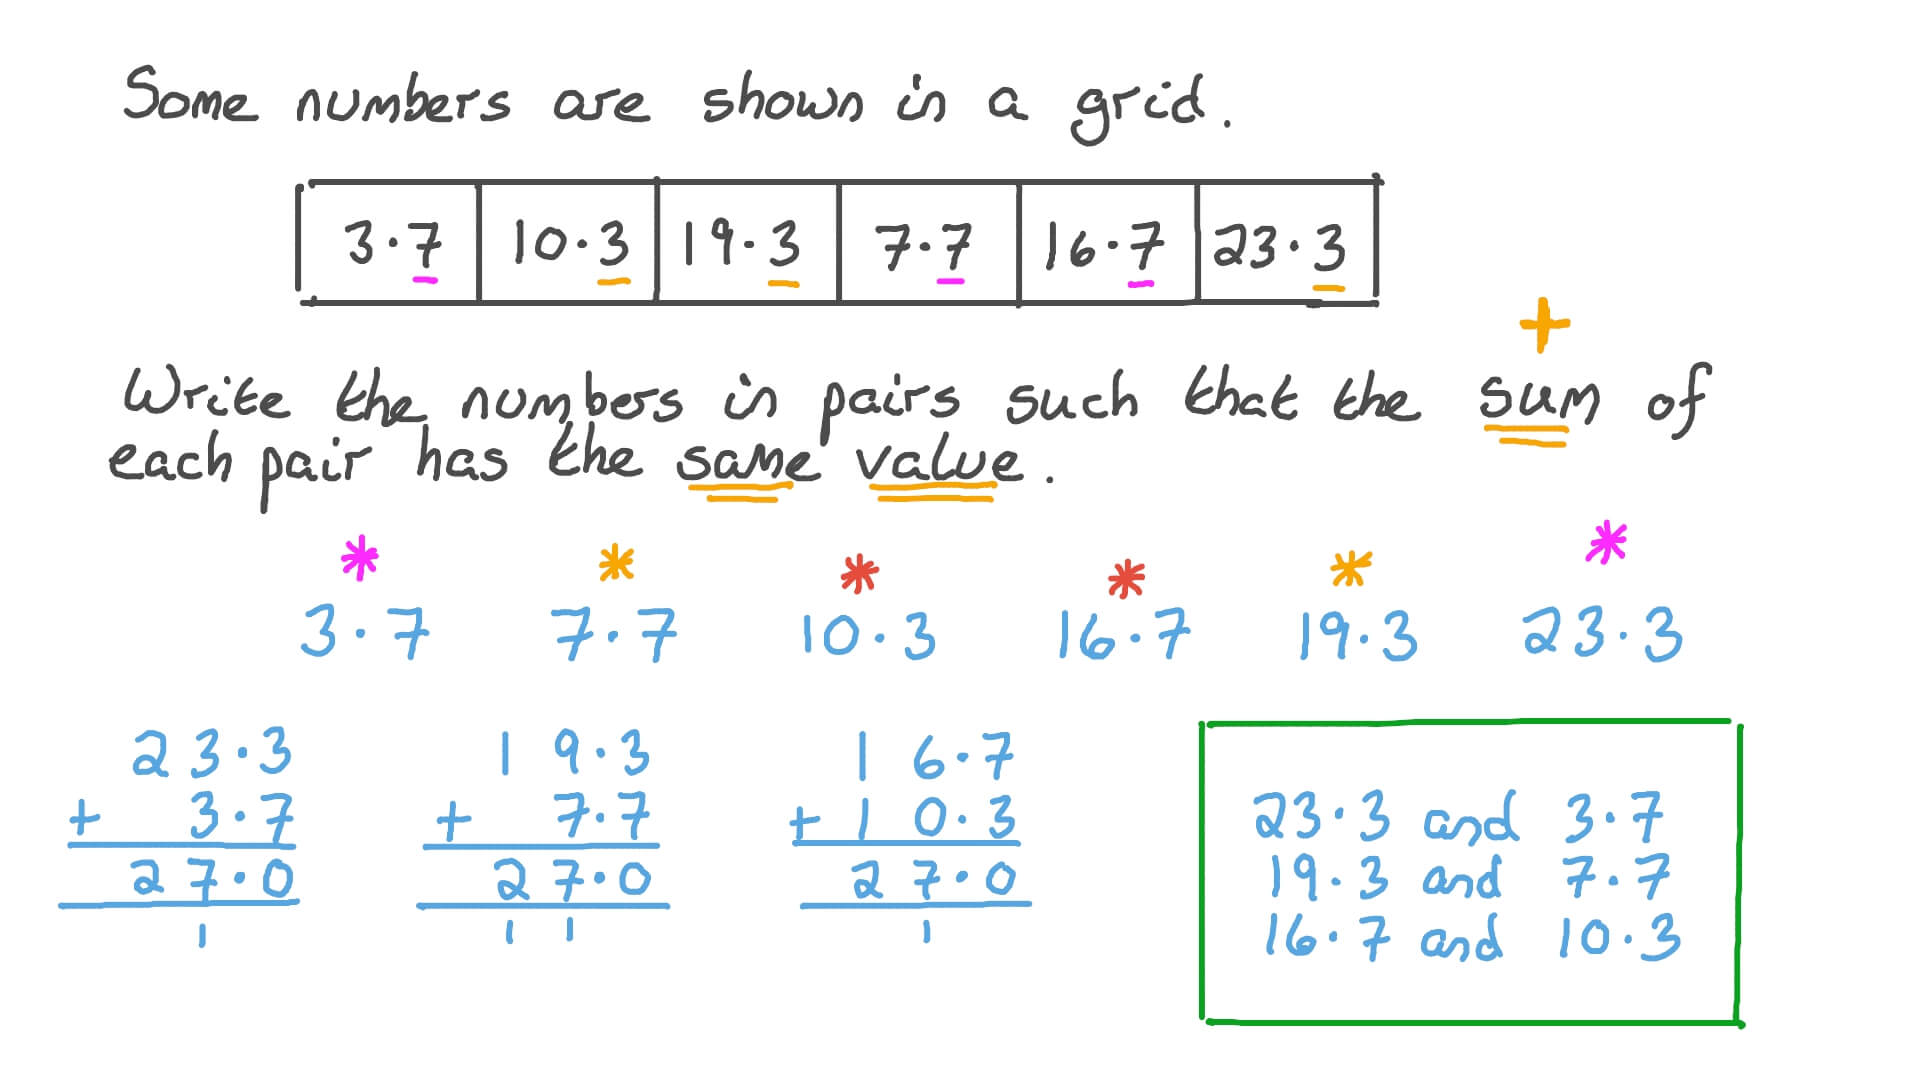 Some numbers are shown in a grid.
3.7 10.3 19.3 7.7 16.7 23.3
+
Write the numbers in pairs such that the sum of
each pair has the same value.
* * * * * *
3.7 7.7 10.3 16.7 19.3 23.3
23.3 19.3 16.7
+ 3.7 + 7.7 + 10.3
27.0 27.0 27.0
1 1 1 1
23.3 and 3.7
19.3 and 7.7
16.7 and 10.3